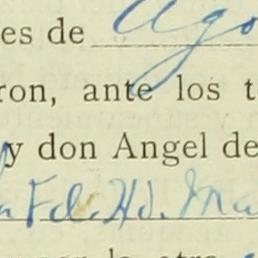 es de Ago
ron, ante los t
y don Angel de
Fd. Hd. Ma